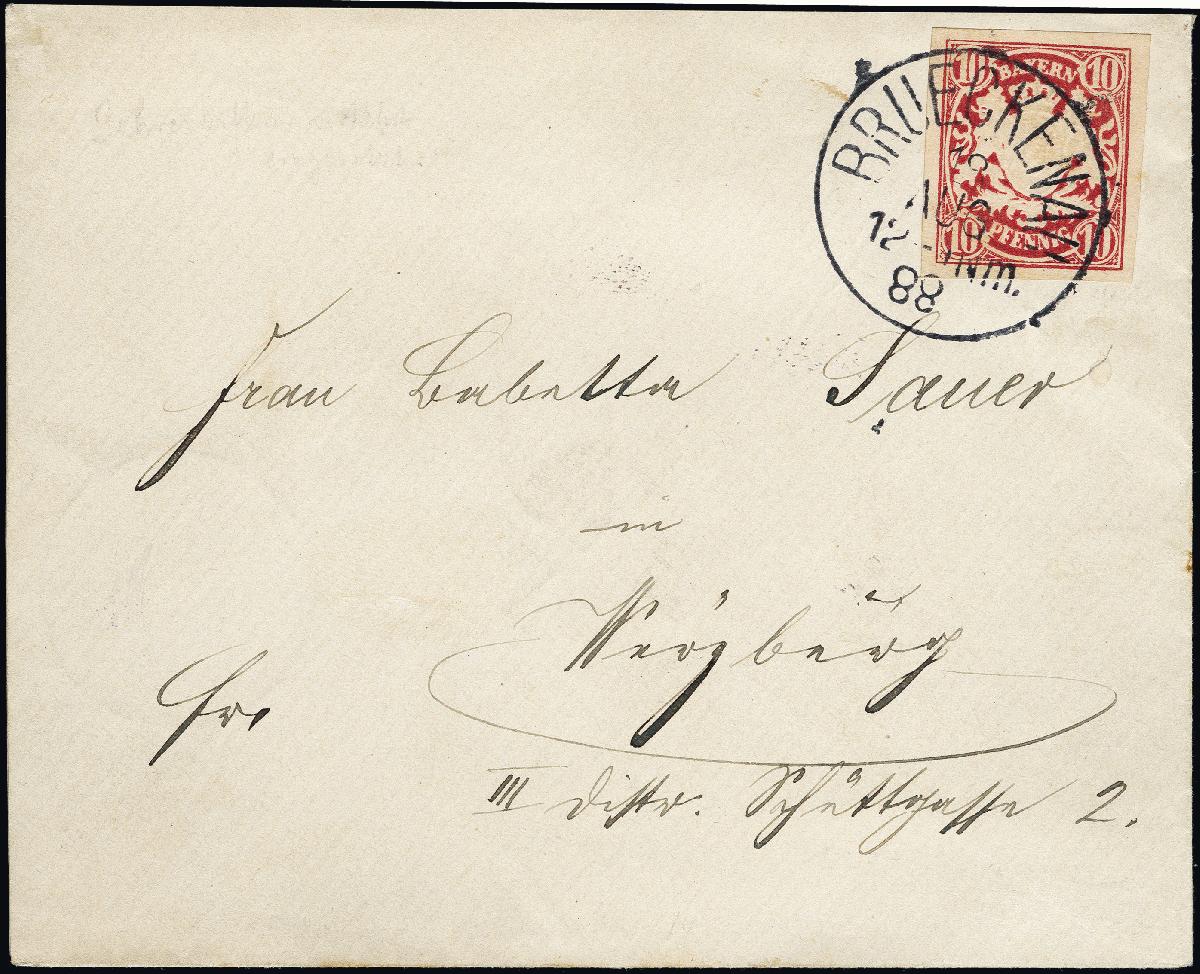 10 BAYERN 10
10 PFENNIG 10
BRUECKENAU
AUG
12-1Nm.
88
Frau Babetta Sauer
in
Würzburg
fr.
III Distr. Schüttgasse 2.